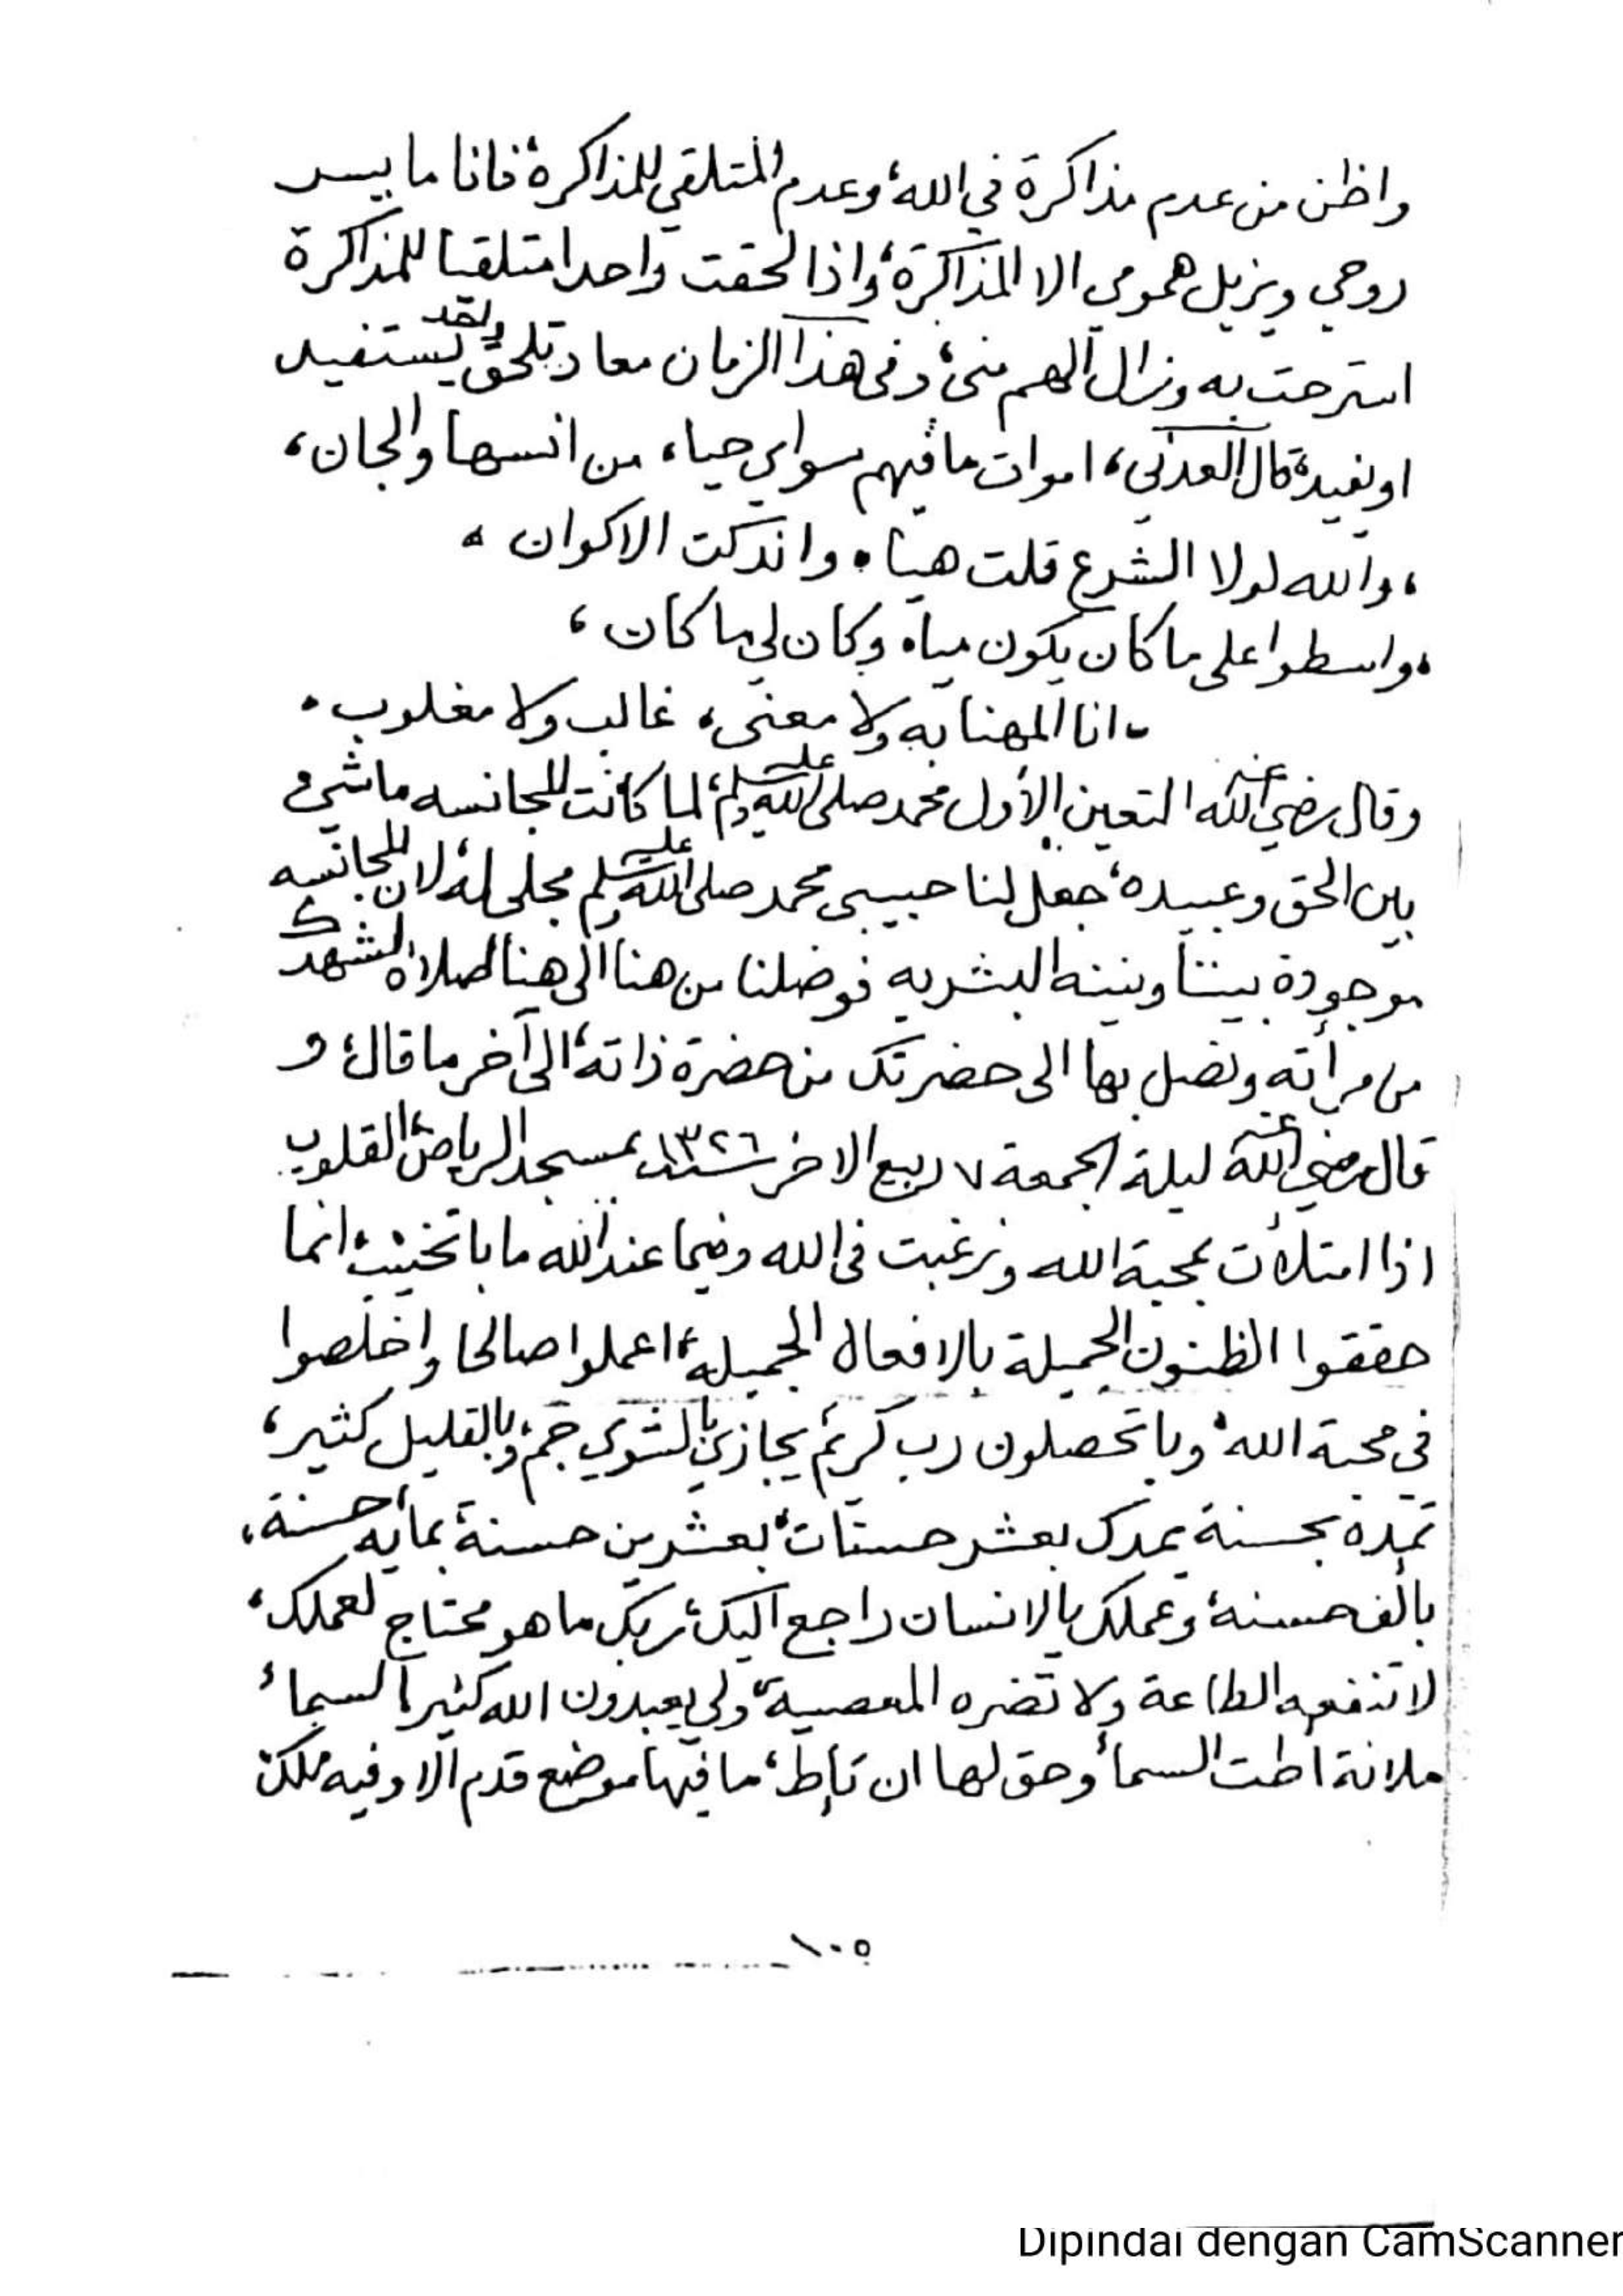 واظن من عدم مذاكرة في الله، وعدم المتلقي للمذاكرة، فانا ما يسر
روحي ويزيل همومي الا المذاكرة، واذا لحقت واحدا متلقيا للمذاكرة
استرحت به وزال الهم مني، وفي هذا الزمان معاد تلحق يستفيد
او يفيد، قال العدني، اموات ما فيهم سواي حيا، من انسها والجان،
، والله لولا الشرع قلت هيا، واندكت الاكوان ،
، واسطوا على ما كان يكون مياه وكان لي ما كان ،
، انا المهنا به ولا معنى، غالب ولا مغلوب .
وقال رضي الله عنه التعين الأول محمد صلى الله عليه وسلم، لما كانت المجانسه ماشي
بين الحق وعبيده، جعل لنا حبيبي محمد صلى الله عليه وسلم مجلى له، لان المجانسه
موجودة بيننا وبينه البشريه فوضلنا من هنا الى هنا لصلاة لشهدك
من مرأته ونصل بها الى حضرتك من حضرة ذاته، الى آخر ما قال، و
قال رضي الله عنه ليلة الجمعة ٧ ربيع الاخر سنة ١٣٢٦ بمسجد الرياض، القلوب
اذا امتلأت بمحبة الله ورغبت في الله وفيما عند الله ما باتخيب، انما
حققوا الظنون الجميلة بالافعال الجميله، اعملوا صالحا واخلصوا
في محبة الله، وباتحصلون رب كريم يجازي بالشوي جم، وبالقليل كثير،
تمده بحسنة يمدك بعشر حسنات، بعشرين حسنة، بمايه حسنة،
بألف حسنه، وعملك يالانسان راجع اليك، ربك ما هو محتاج لعملك،
لا تنفعه الطاعة ولا تضره المعصية، ولي يعبدون الله كثير السماء
ملانة أطت السماء وحق لها ان تأط، ما فيها موضع قدم الا وفيه ملك
١٠٥
Dipindai dengan CamScanner